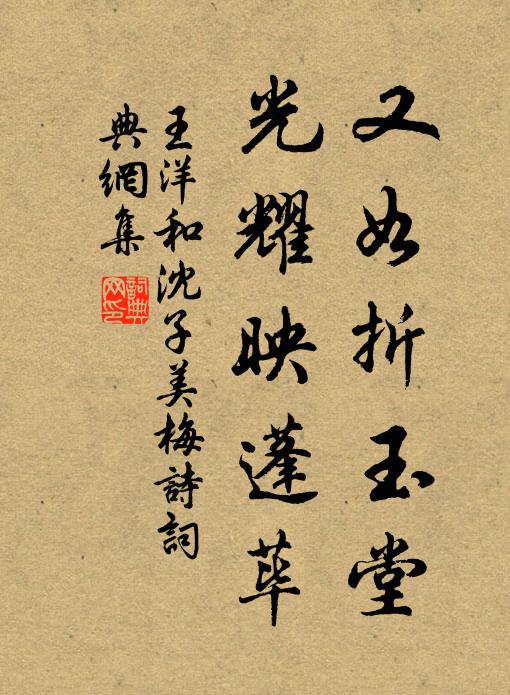 又如折玉堂
光耀映蓬荜
王洋和沈子美梅詩詞
典網集
詞典
网印